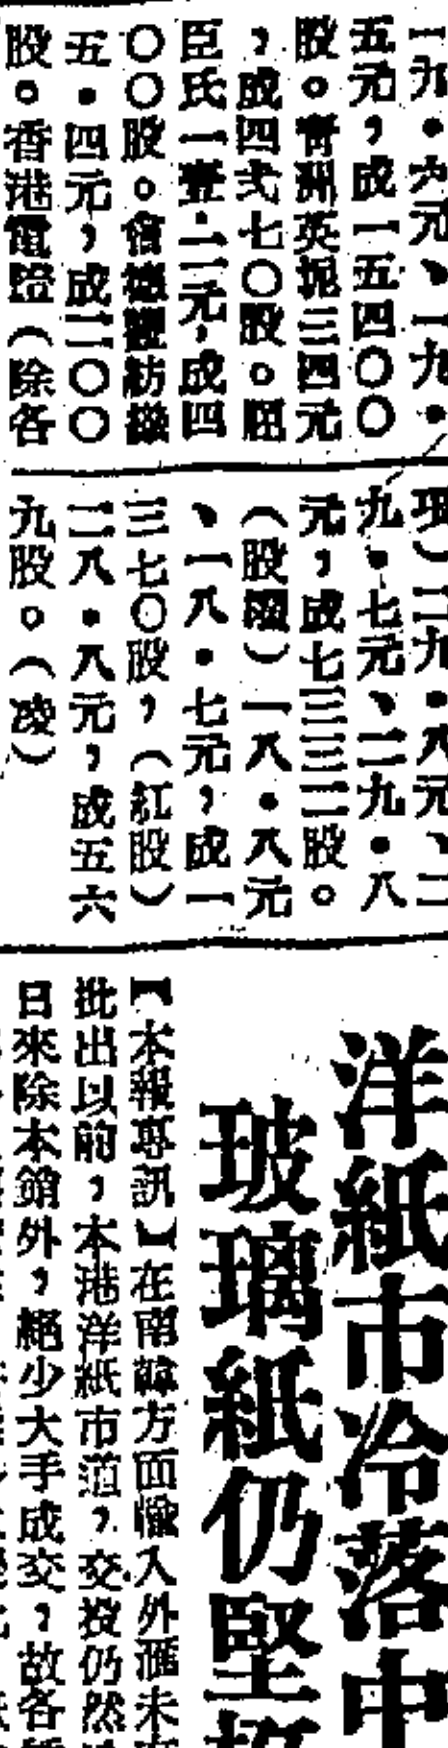 一九・六元、一九・
五元，成一五四〇〇
股。青洲英坭三四元
，成四弍七〇股。屈
臣氏一壹・二元，成四
〇〇股。會德豐紡織
五・四元，成二〇〇
股。香港電燈（除各
項）二九・八元、二
九・七元、二九・八
元，成七三三二股。
（股權）一八・八元
、一八・七元，成一
三七〇股，（紅股）
二八・八元，成五六
九股。（凌）
洋紙市冷落中
玻璃紙仍堅
【本報專訊】在南韓方面撥入外滙未
批出以前，本港洋紙市道，交投仍然
日來除本銷外，絕少大手成交，故各